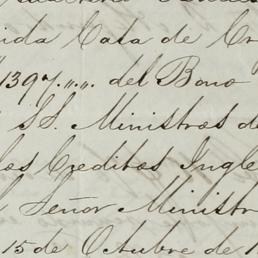 ida Casa de Cr
1397. „ „ del Bono
SS. Ministros de
los Creditos Ingle
Señor Ministr
15 de Octubre de 1